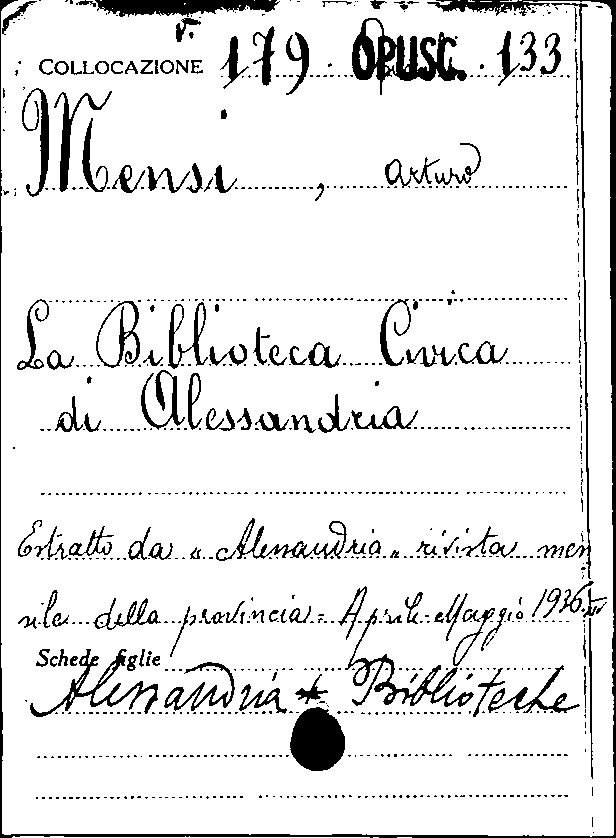 v.
COLLOCAZIONE 179 OPUSC. 133
Mensi, Arturo
La Biblioteca Civica
di Alessandria
Estratto da "Alessandria" rivista men
sile della provincia = Aprile-Maggio 1936
Schede figlie
Alessandria * Biblioteche